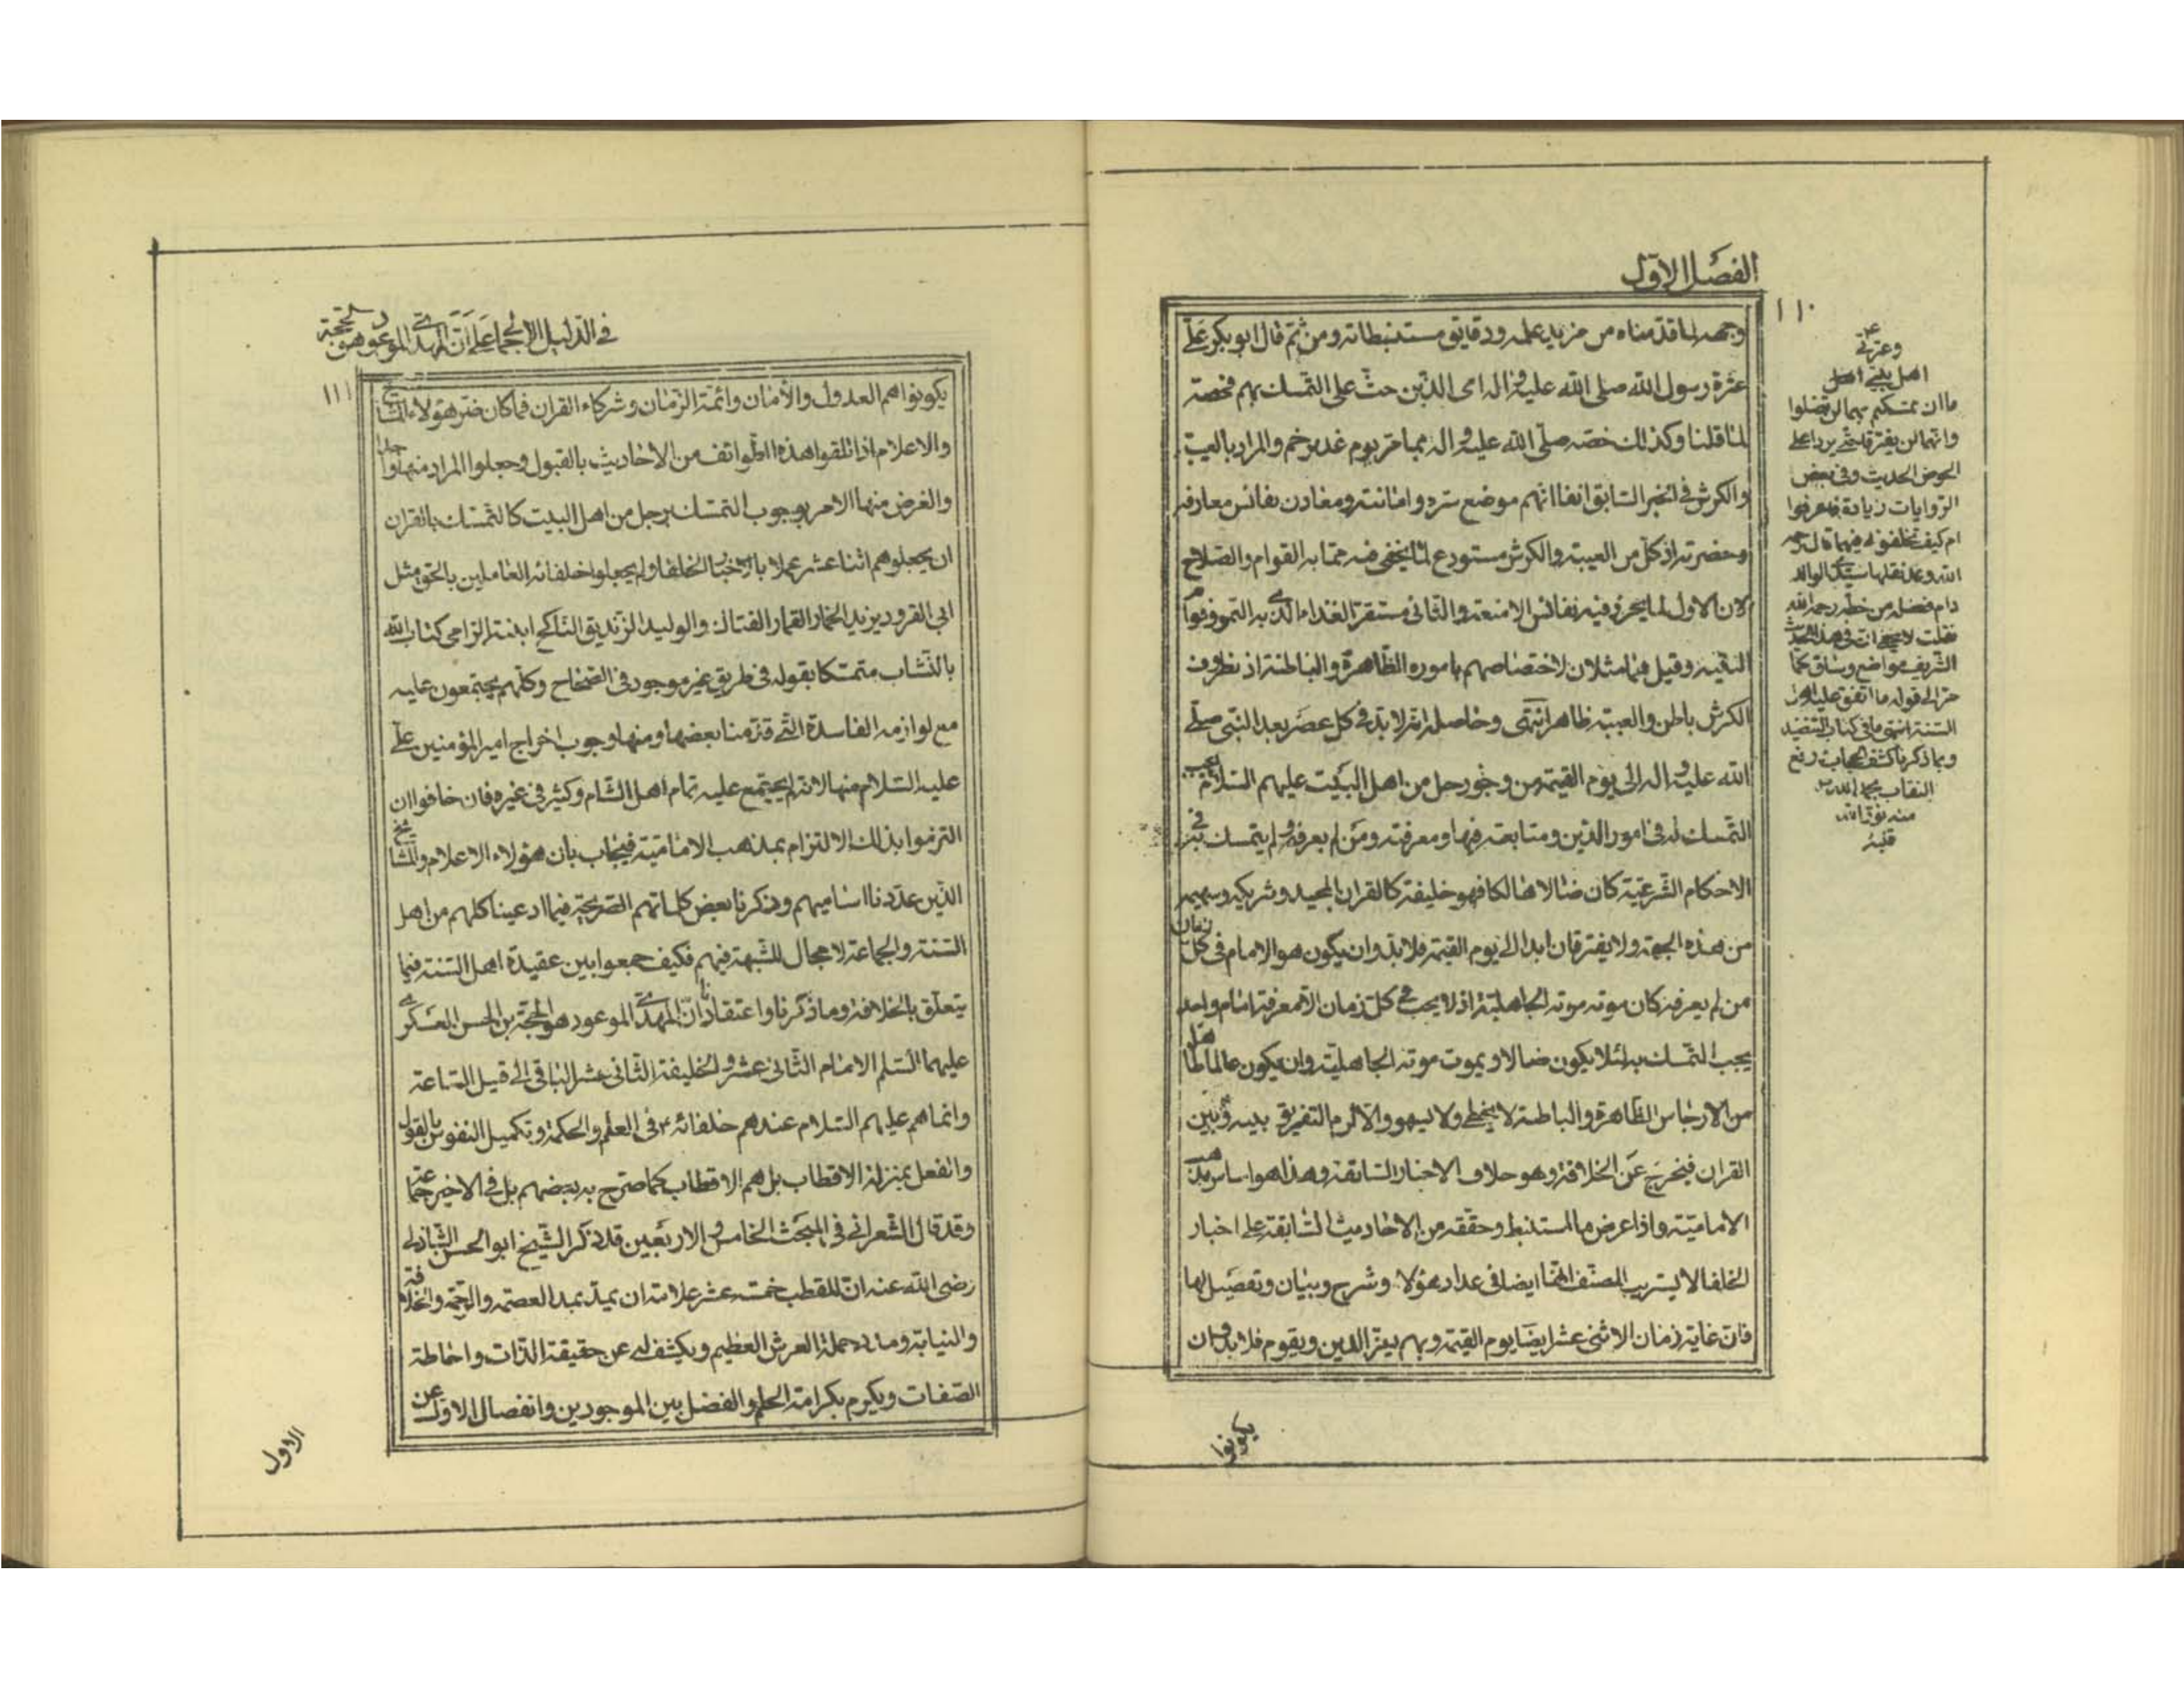 الفصل الاول
١١٠
وجهه لما قدمناه من مزيد علمه ودقايق مستنبطاته ومن ثم قال ابو بكر علي
عترة رسول الله صلى الله عليه واله اى الذين حث على التمسك بهم فخصه
لما قلنا وكذلك خصه صلى الله عليه واله بما مر يوم غدير خم والمراد بالعيبة
والكرش في الخبر السابق انفا انهم موضع سره وامانته ومعادن نفائس معارفه
وحضرته اذ كل من العيبة والكرش مستودع لما يخفى فيه مما به القوام والصلاح
لان الاول لما يحرز فيه نفائس الامتعة والثاني مستقر الغذاء الذي به النمو وقوام
البنية وقيل هما مثلان لاختصاصهم باموره الظاهرة والباطنة اذ مظروف
الكرش باطن والعيبة ظاهر انتهى وحاصله انه لا بد في كل عصر بعد النبي صلى
الله عليه واله الى يوم القيمة من وجود رجل من اهل البيت عليهم السلام يجب
التمسك له في امور الدين ومتابعته فيها ومعرفته ومن لم يعرفه ولم يتمسك به في
الاحكام الشرعية كان ضالا هالكا فهو خليفة كالقران المجيد وشريكه وسهيمه
من هذه الجهة ولا يفترقان ابدا الى يوم القيمة فلا بد وان يكون هو الامام في كل زمان
من لم يعرفه كان موته موته الجاهلية اذ لا يجب في كل زمان الا معرفة امام واحد
يجب التمسك به لئلا يكون ضالا ويموت موته الجاهلية وان يكون عالما طاهرا
من الارجاس الظاهرة والباطنة لا يخطى ولا يسهو والا لزم التفريق بينه وبين
القران فيخرج عن الخلافة وهو خلاف الاخبار السابقة وهذا هو اساس مذهب
الامامية واذا عرض ما استنبط وحققه من الاحاديث السابقة على اخبار
الخلفا لا يستريب المصنف انها ايضا في عداد هؤلاء وشرح وبيان وتفصيل لها
فان غاية زمان الاثنى عشر ايضا يوم القيمة وبهم يعز الدين ويقوم فلا بد وان
يكونوا
وعترتي
اهل بيتي اهل
ما ان تمسكتم بهما لن تضلوا
وانهما لن يفترقا حتى يردا على
الحوض الحديث وفي بعض
الروايات زيادة فاعرفوا
ام كيف تخلفوني فيهما قال رحمه
الله وقد نقلها سيدي الوالد
دام فضله من خطه رحمه الله
فقلت لا يخفى ان في هذا الحديث
الشريف مواضع وساق كما
مر الى قوله ما اتفق عليه اهل
السنة انتهى ما في كتاب التنضيد
وبما ذكرنا كشف الحجاب رفع
النقاب بحمد الله
منه نور الله
قلبه
في الدليل الاجماع على ان المهدي الموعود هو الحجة
١١١
يكونوا هم العدول والأمان وائمة الزمان وشركاء القران فما كان ضر هؤلاء المشايخ
والاعلام اذ تلقوا هذه الطوائف من الاحاديث بالقبول وجعلوا المراد منها واحدا
والغرض منها الامر بوجوب التمسك برجل من اهل البيت كالتمسك بالقران
ان يجعلوهم اثنا عشر عملا باخبار الخلفا ولم يجعلوا خلفائه العاملين بالحق مثل
ابي القرود يزيد الخمار القمار الفتاك والوليد الزنديق الناكح ابنته الرامي كتاب الله
بالنشاب متمسكا بقوله في طريق غير موجود في الصحاح وكلهم يجتمعون عليه
مع لوازمه الفاسدة التي قدمنا بعضها ومنها وجوب اخراج امير المؤمنين على
عليه السلام منها لانه لم يجتمع عليه تمام اهل الشام وكثير في غيره فان خافوا ان
التزموا بذلك الالتزام بمذهب الامامية فيجاب بان هؤلاء الاعلام والمشايخ
الذين عددنا اساميهم وذكرنا بعض كلماتهم الصريحة فيما ادعينا كلهم من اهل
السنة والجماعة لا مجال للشبهة فيهم فكيف جمعوا بين عقيدة اهل السنة فيما
يتعلق بالخلافة وما ذكرنا واعتقادنا ان المهدي الموعود هو الحجة بن الحسن العسكري
عليهما السلم الامام الثاني عشر والخليفة الثاني عشر الباقي الى قبيل الساعة
وانما هم عليهم السلام عندهم خلفائه في العلم والحكمة وتكميل النفوس بالقول
والفعل بمنزلة الاقطاب بل هم الاقطاب كما صرح به بعضهم بل في الاخير جماعة
وقد قال الشعراني في المبحث الخامس والاربعين قد ذكر الشيخ ابو الحسن الشاذلي
رضى الله عنه ان للقطب خمسة عشر علامة ان يمد بمدد العصمة والرحمة والخلافة
والنيابة ومدد حملة العرش العظيم ويكشف له عن حقيقة الذات واحاطة
الصفات ويكرم بكرامة الحلم والفضل بين الموجودين وانفصال الاول عن
الاول